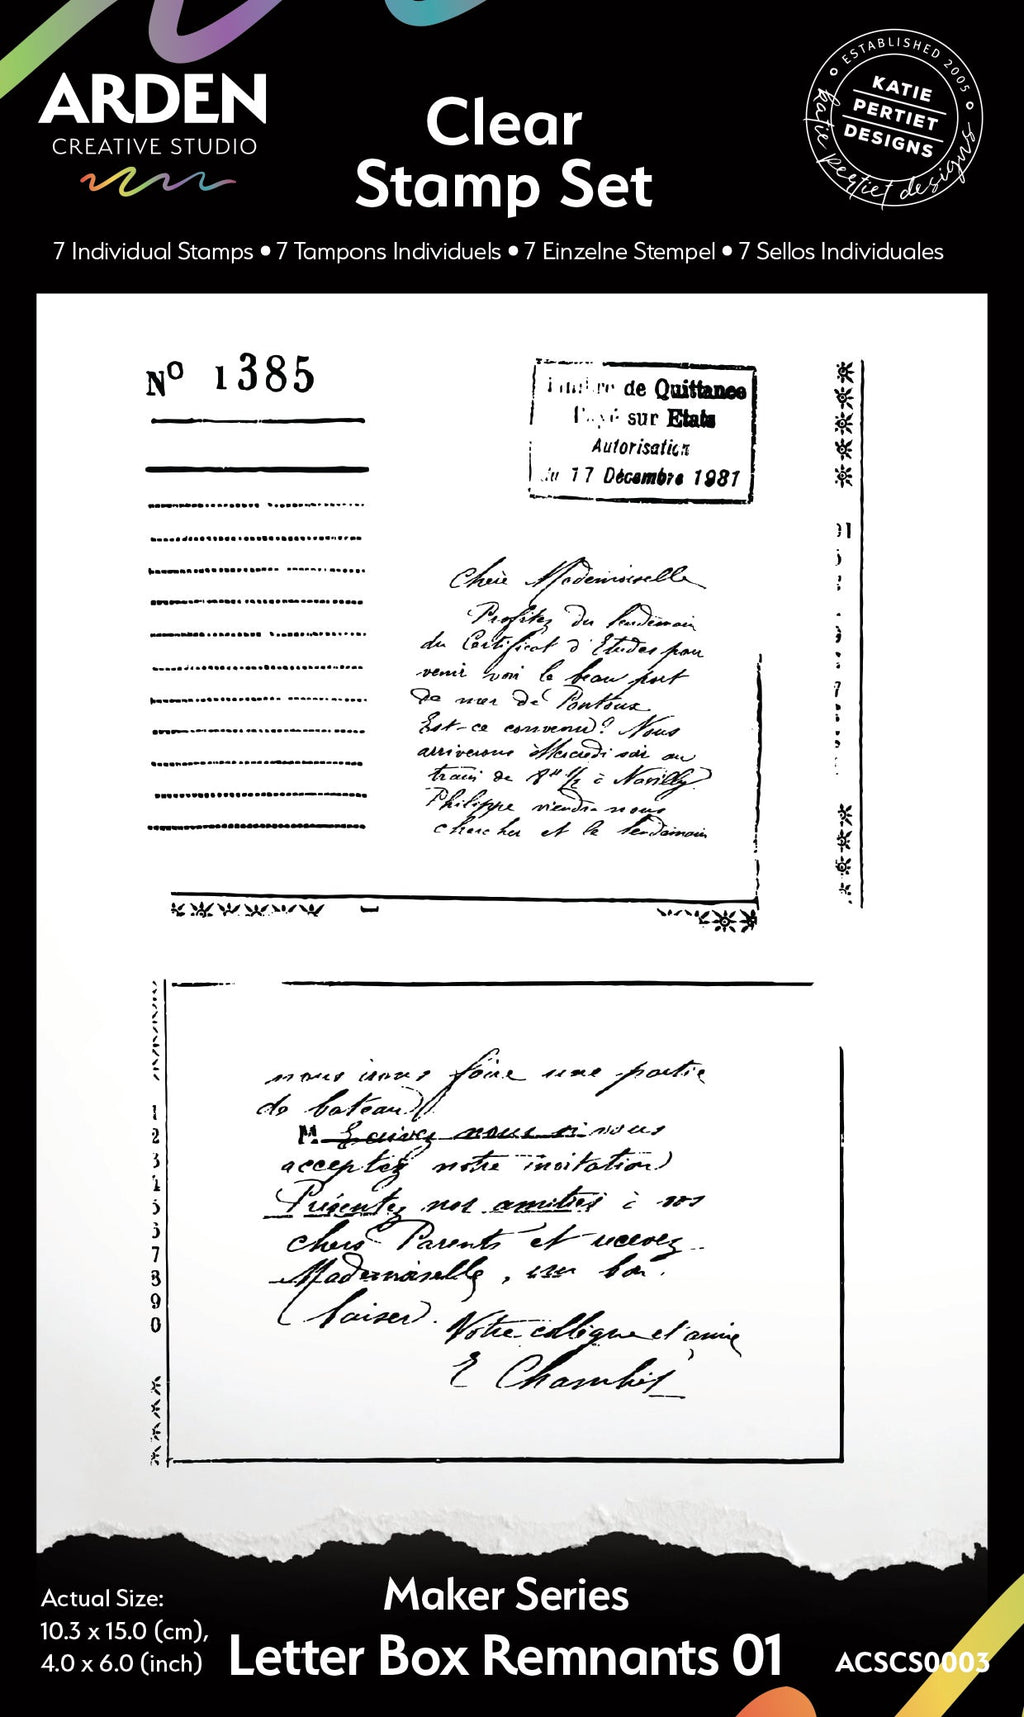 ARDEN
CREATIVE STUDIO
Clear
Stamp Set
ESTABLISHED 2005
KATIE
PERTIET
DESIGNS
katie pertiet designs
7 Individual Stamps • 7 Tampons Individuels • 7 Einzelne Stempel • 7 Sellos Individuales
Nº 1385
de Quittance
sur Etats
Autorisation
du 17 Décembre 1981
Chère Mademoiselle
Profitez du lendemain
du Certificat d'Etudes pour
venir voir le beau port
de mer de
Est-ce convenu? Nous
arriverons Mercredi soir au
train de 8h 1/2 à
Philippe viendra nous
chercher et le lendemain
nous irons faire une partie
de bateau
M Ecrivez nous si vous
acceptez notre invitation
Présentez nos amitiés à vos
chers Parents et recevez
Mademoiselle, un bon
baiser.
Votre collègue et amie
E
1
2
3
7
8
9
0
Actual Size:
10.3 x 15.0 (cm),
4.0 x 6.0 (inch)
Maker Series
Letter Box Remnants 01
ACSCS0003